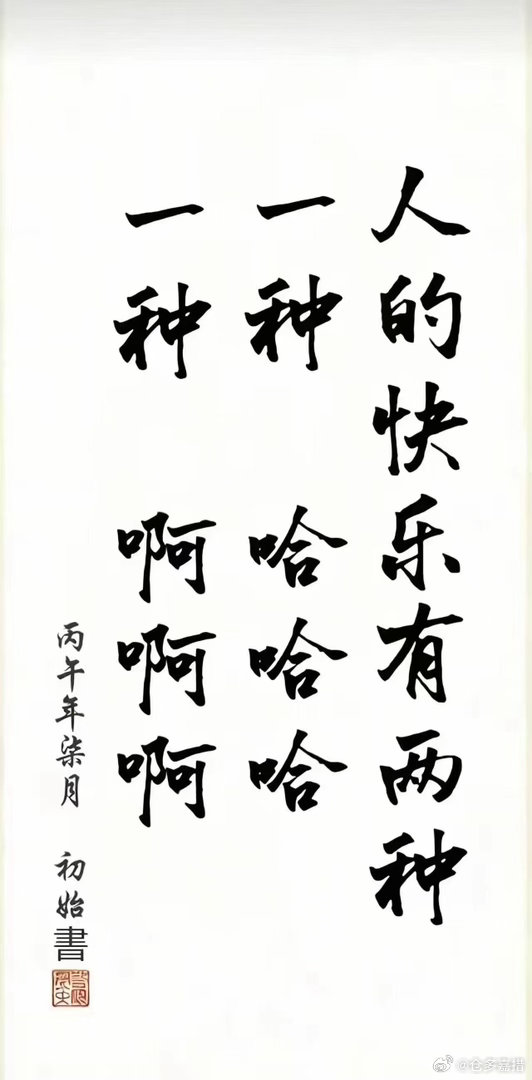 人的快乐有两种
一种 哈哈哈
一种 啊啊啊
丙午年柒月 初始書
@仓多嘉措